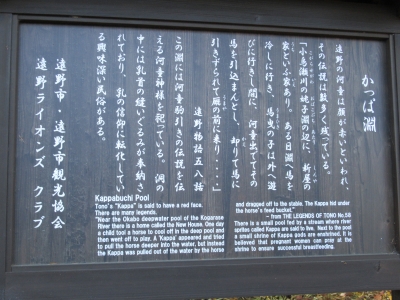 かっぱ淵
遠野の河童は顔が赤いといわれ、
その伝説は数多く残っている。
「小烏瀬川の姥子淵の辺に、新屋の
家といふ家あり。ある日淵へ馬を
冷しに行き、馬曳の子は外へ遊
びに行きし間に、河童出でてその
馬を引込まんとし、却りて馬に
引きずられて厩の前に来り・・・」
遠野物語五八話
この淵には河童駒引きの伝説を伝
える河童神様を祀っている。洞の
中には乳首の縫いぐるみが奉納さ
れており、乳の信仰に転化してい
る興味深い民俗がある。
遠野市・遠野市観光協会
遠野ライオンズ クラブ
Kappabuchi Pool
Tono's "Kappa" is said to have a red face.
There are many legends.
"Near the Okabo deepwater pool of the Koparase
River there is a home called the New House. One day
a child took a horse to cool off in the deep pool and
then went off to play. A 'Kappa' appeared and tried
to pull the horse deeper into the water, but instead
the Kappa was pulled out of the water by the horse
and dragged off to the stable. The Kappa hid under
the horse's feed bucket."
- from THE LEGENDS OF TONO No.58
There is a small pool fed by a stream where river
sprites called Kappa are said to live. Next to the pool
a small shrine of Kappa gods are enshrined. It is
believed that pregnant women can pray at the
shrine to ensure successful breastfeeding.